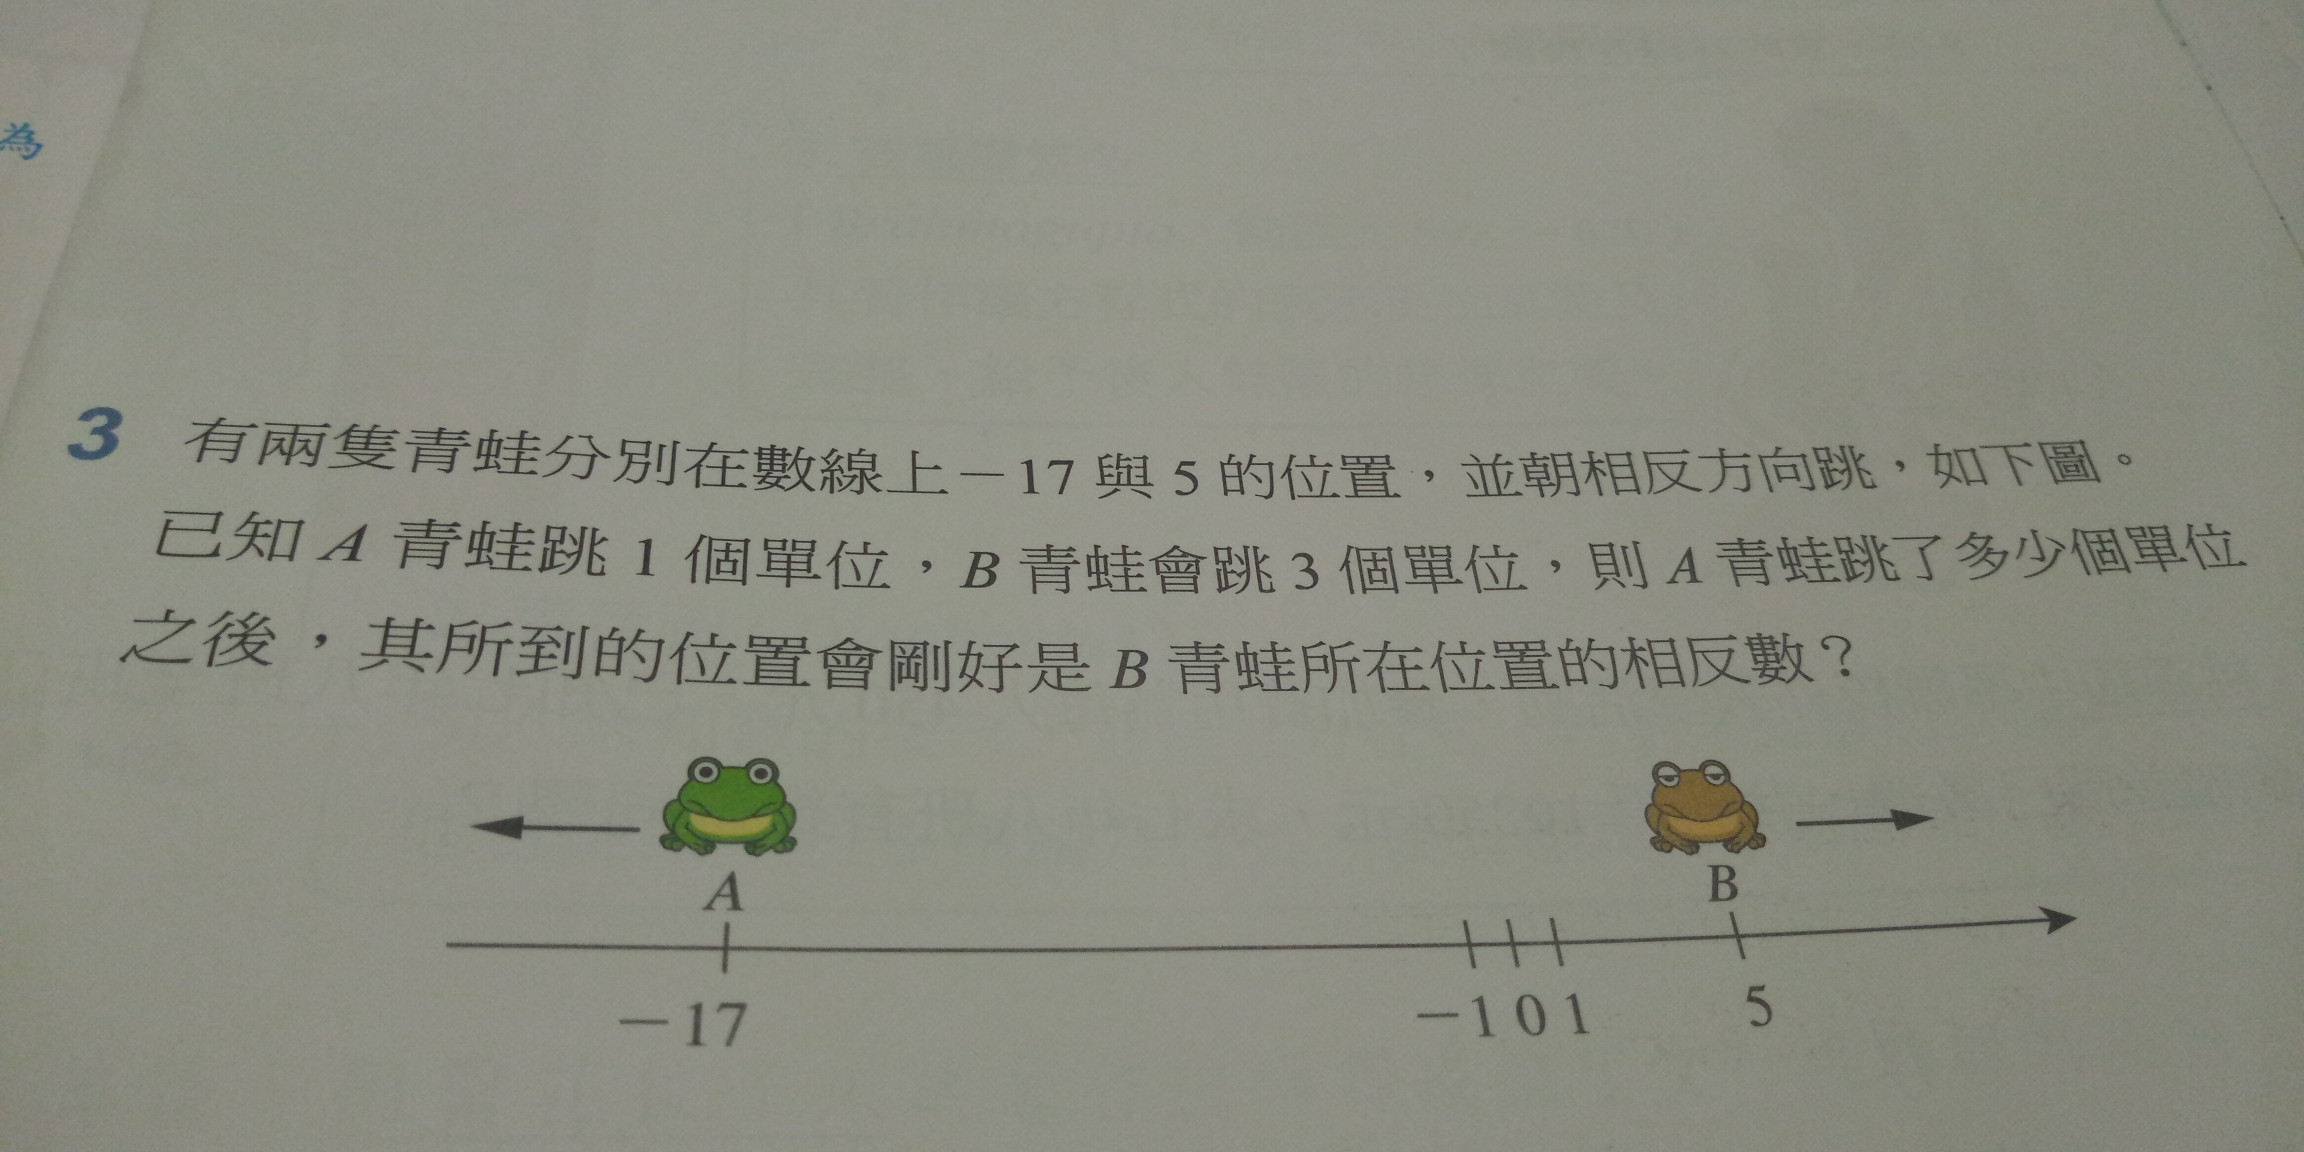 為
3 有兩隻青蛙分別在數線上－17 與 5 的位置，並朝相反方向跳，如下圖。
已知 A 青蛙跳 1 個單位，B 青蛙會跳 3 個單位，則 A 青蛙跳了多少個單位
之後，其所到的位置會剛好是 B 青蛙所在位置的相反數？
A B
－17 －1 0 1 5